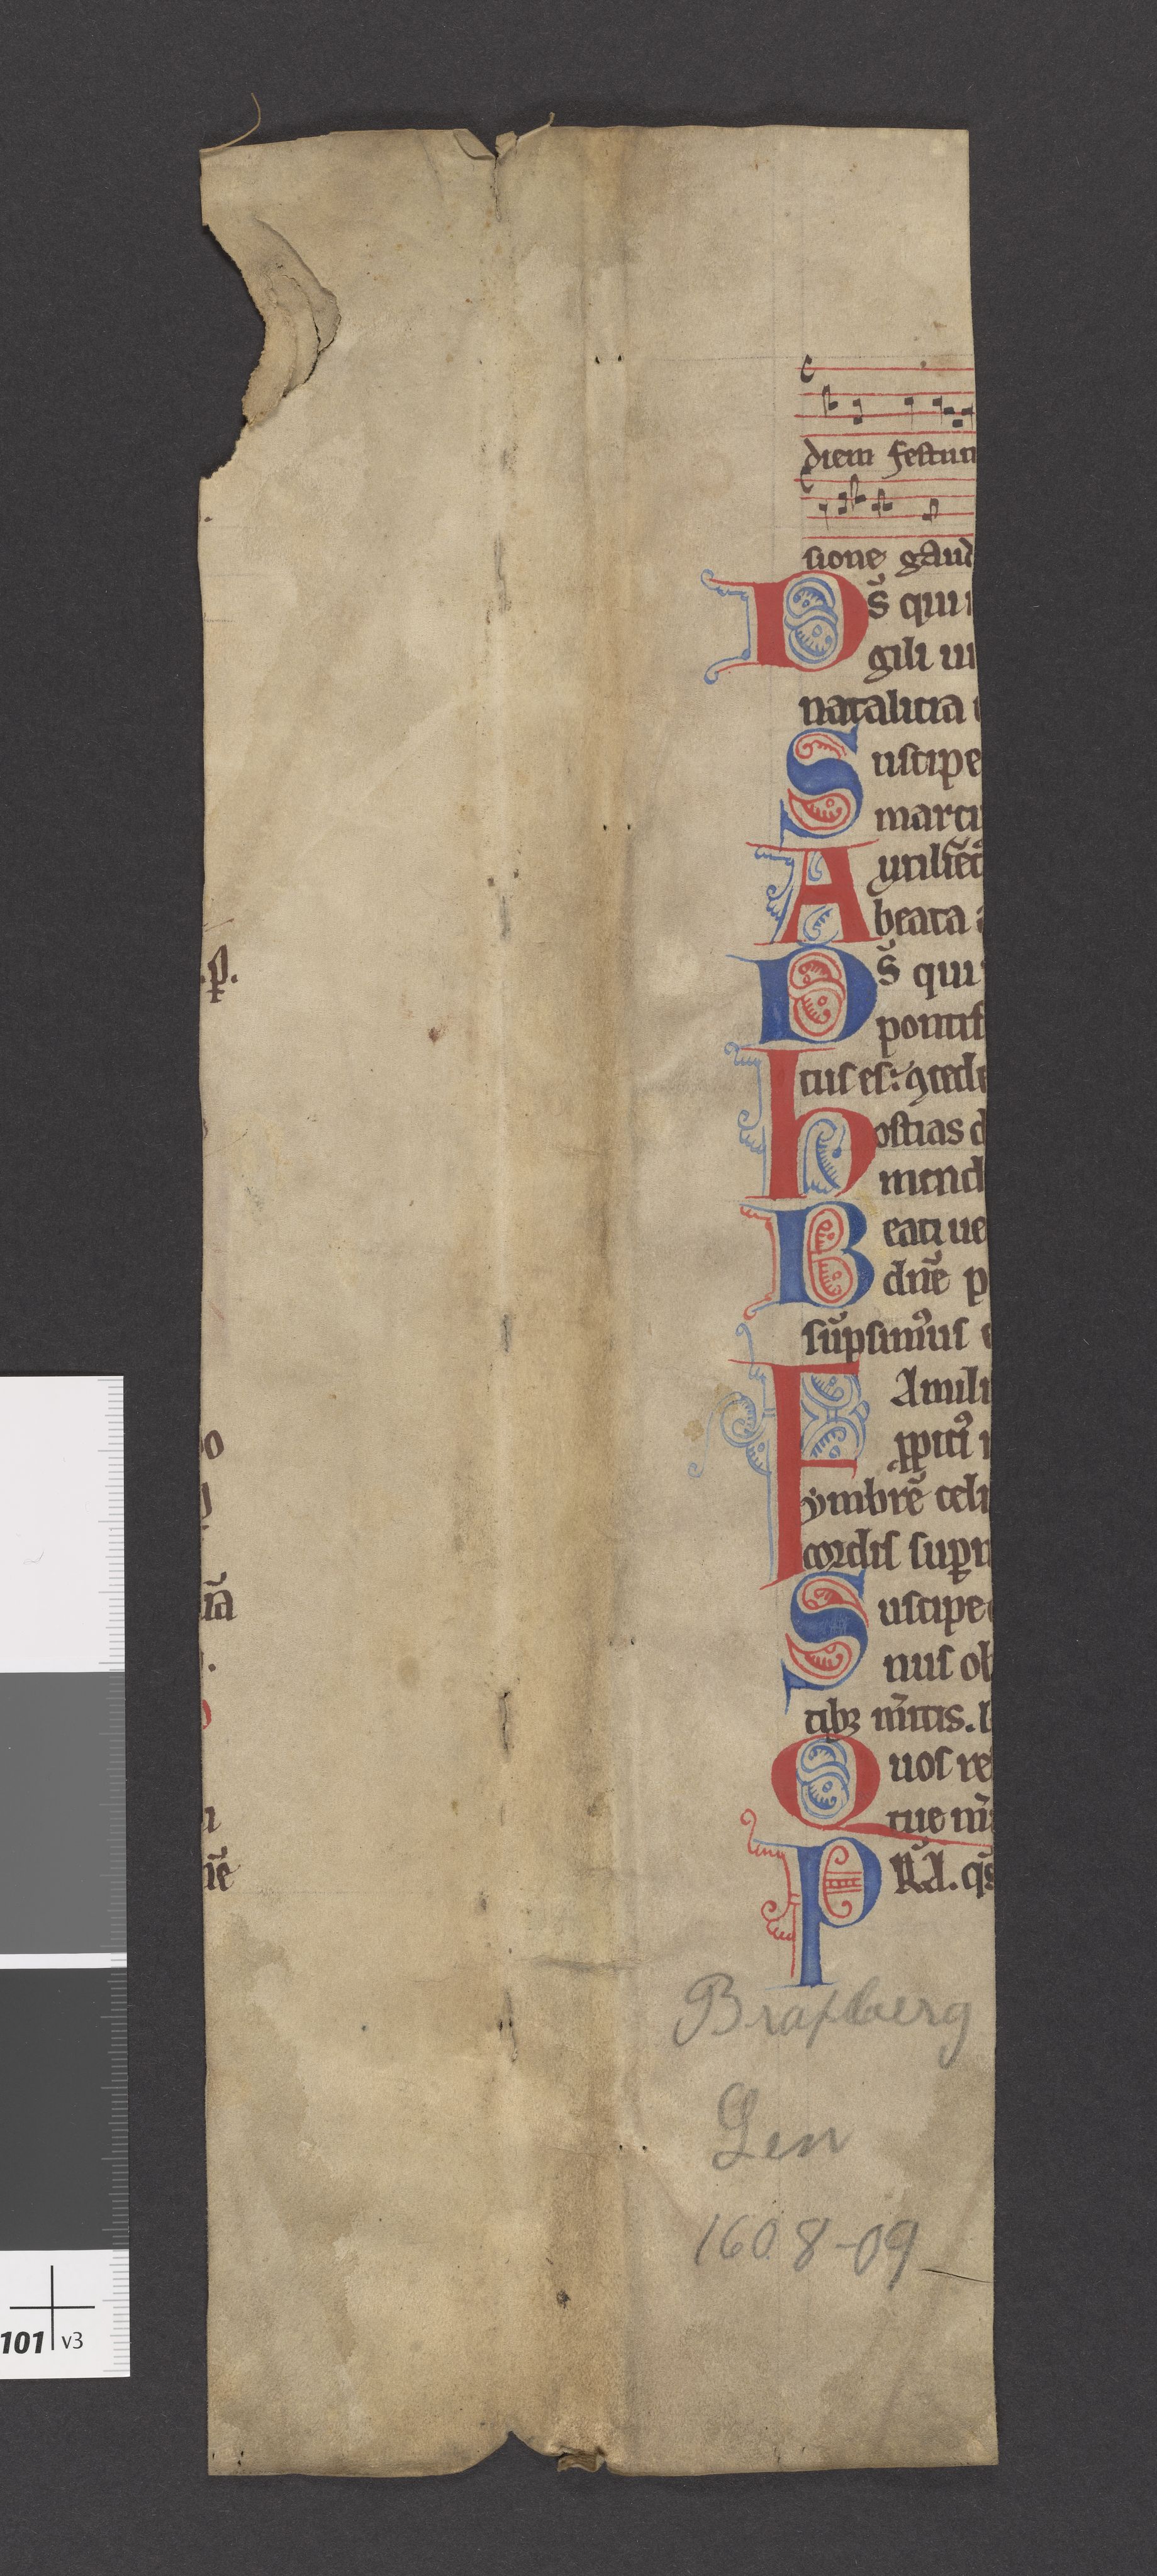 .p.
o
ña
n
ñe
diem festum
sione gaud
Ds̄ qui
gili ui
natalicia
Suscipe
martir
Auxiliēt
beata
Ds̄ qui
pontif
tus es: ꝯcede
hostias d
mend
Beati ue
dñe p
sūpsimus
FAmili
ꝓpiti⁹
ymbrē celi
cordis supn
Suscipe
nus ob
tibꝫ m̄itis.
Quos re
tue m̄
PR.A. qs̄
Braxberg
Len
1608-09
101 v3